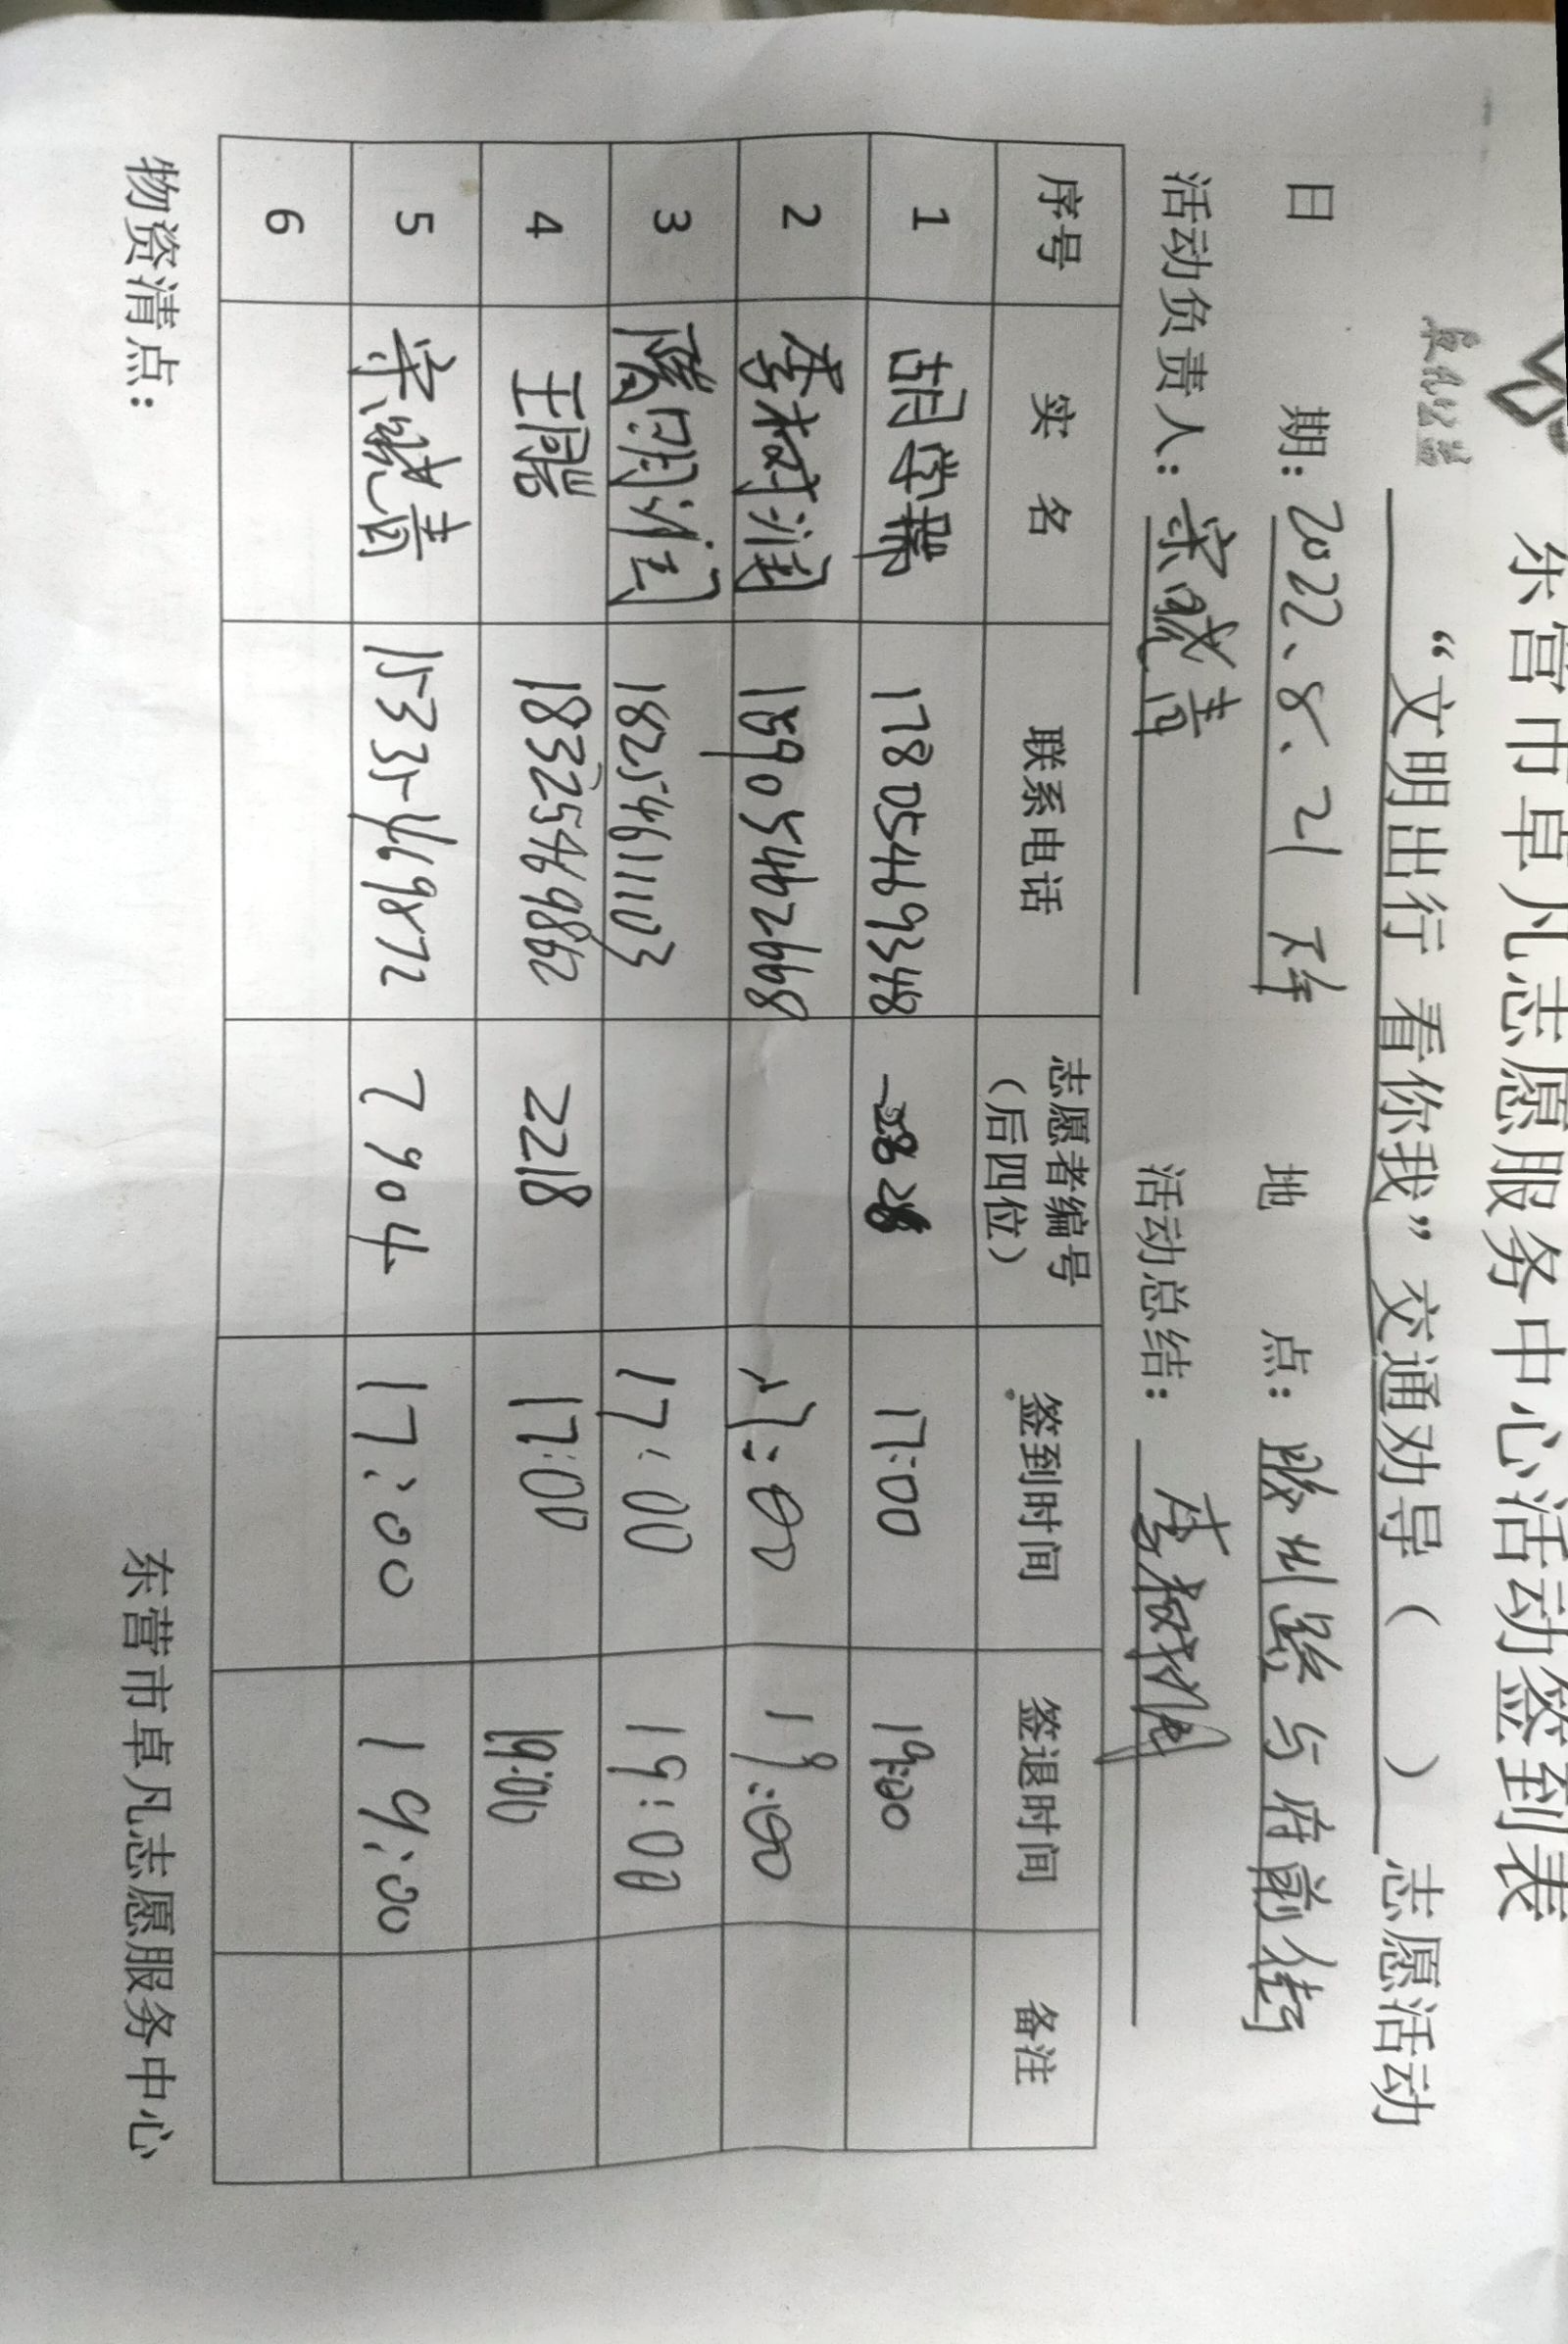 东营市卓凡志愿服务中心活动签到表
卓凡公益
“文明出行 看你我”交通劝导（ ）志愿活动
日 期：2022、8、21 地 点：胶州路与府前街
活动负责人： 活动总结：李树润
序号 实 名 联系电话 志愿者编号（后四位） 签到时间 签退时间 备注
1 胡学鹏 17805469348 17:00 19:00
2 李树润 15905462668 17:00 19:00
3 18254611103 17:00 19:00
4 王 18325469862 2218 17:00 19:00
5 15335469872 7904 17:00 19:00
6
物资清点： 东营市卓凡志愿服务中心